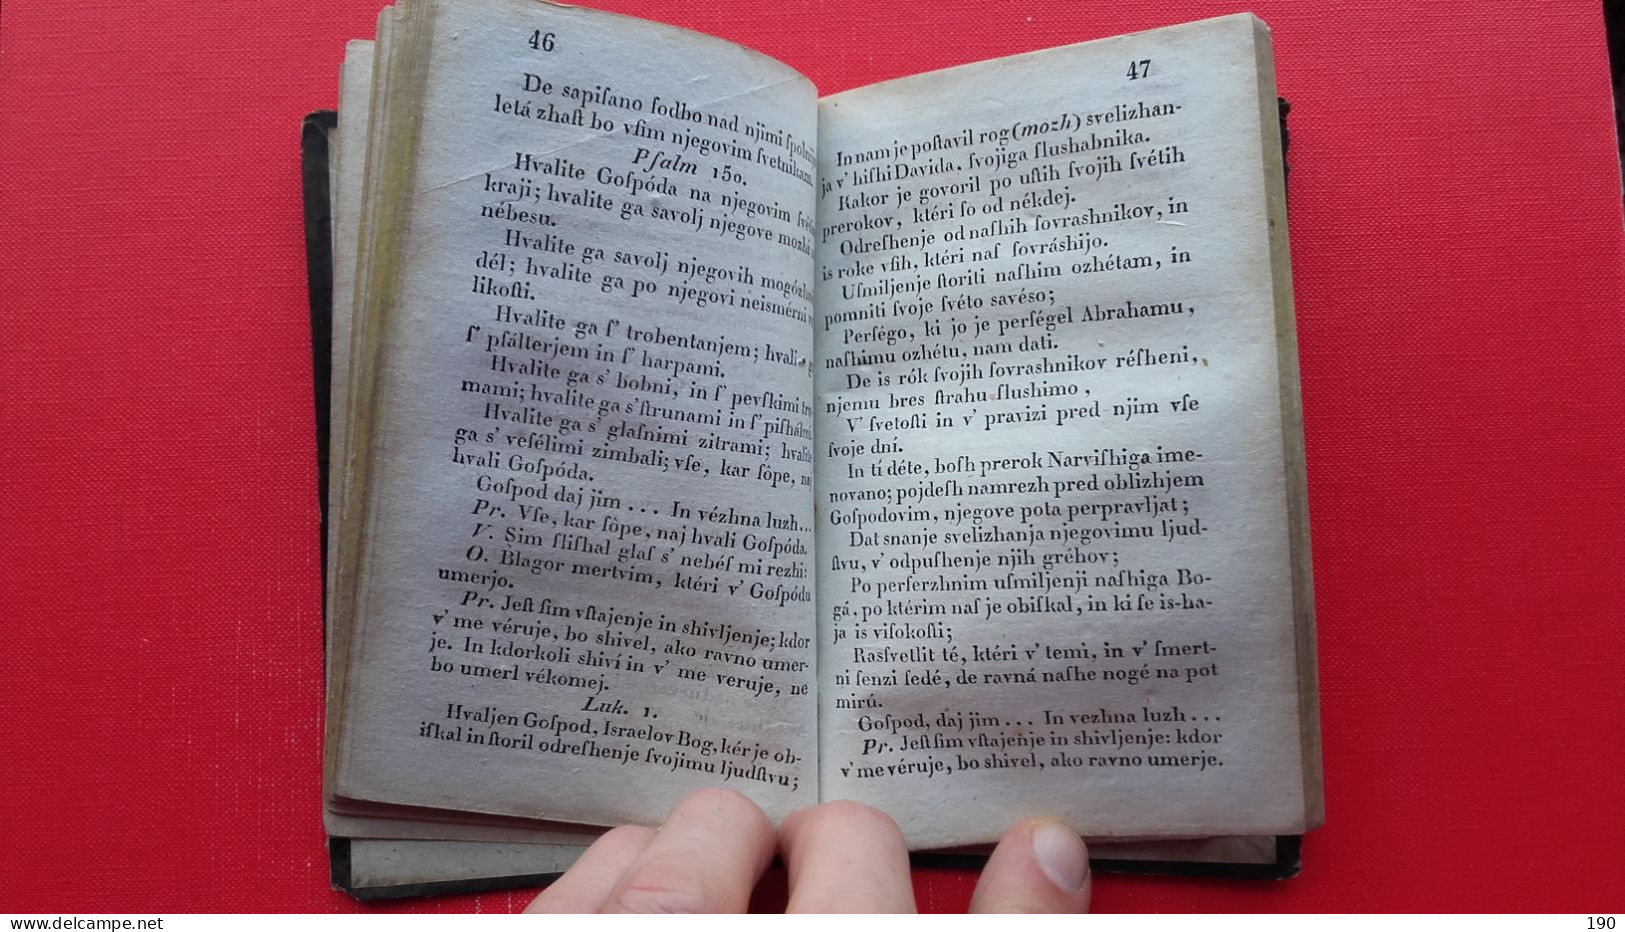 46
De sapiſano ſodbo nad njimi
letá zhaſt bo vſim njegovim ſvetnikam.
Pſalm 150.
Hvalite Goſpóda na njegovim
kraji; hvalite ga savolj njegove mozhi
nébesu.
Hvalite ga savolj njegovih
dél; hvalite ga po njegovi neismérni
likoſti.
Hvalite ga ſ' trobentanjem; hvali
ſ' pſálterjem in ſ' harpami.
Hvalite ga s' bobni, in ſ' pevſkimi
mami; hvalite ga s' ſtrunami in ſ'
Hvalite ga s' glaſnimi zitrami; hvalite
ga s' veſélimi zimbali; vſe, kar ſôpe, naj
hvali Goſpóda.
Goſpod daj jim . . . In vézhna luzh...
Pr. Vſe, kar ſôpe, naj hvali Goſpóda.
V. Sim ſliſhal glaſ s' nebéſ mi rezhi:
O. Blagor mertvim, ktéri v' Goſpódu
umerjo.
Pr. Jeſt ſim vſtajenje in shivljenje; kdor
v' me véruje, bo shivel, ako ravno umer-
je. In kdorkoli shiví in v' me veruje, ne
bo umerl vékomej.
Luk. 1.
Hvaljen Goſpod, Israelov Bog, kér je ob-
iſkal in ſtoril odreſhenje ſvojimu ljudſtvu;
47
In nam je poſtavil rog (mozh) svelizhan-
ja v' hiſhi Davida, ſvojiga ſlushabnika.
Kakor je govoril po uſtih ſvojih ſvétih
prerokov, ktéri ſo od nékdej.
Odreſhenje od naſhih ſovrashnikov, in
is roke vſih, ktéri naſ ſovráshijo.
Uſmiljenje ſtoriti naſhim ozhétam, in
pomniti ſvoje ſvéto savéso;
Perſégo, ki jo je perſégel Abrahamu,
naſhimu ozhétu, nam dati.
De is rók ſvojih ſovrashnikov réſheni,
njemu bres ſtrahu ſlushimo,
V' ſvetoſti in v' pravizi pred njim vſe
ſvoje dní.
In tí déte, boſh prerok Narviſhiga ime-
novano; pojdeſh namrezh pred oblizhjem
Goſpodovim, njegove pota perpravljat;
Dat snanje svelizhanja njegovimu ljud-
ſtvu, v' odpuſhenje njih gréhov;
Po perſerzhnim uſmiljenji naſhiga Bo-
gá, po ktérim naſ je obiſkal, in ki ſe is-ha-
ja is viſokoſti;
Rasſvetlit té, ktéri v' temi, in v' ſmert-
ni ſenzi ſedé, de ravná naſhe nogé na pot
mirú.
Goſpod, daj jim . . . In vezhna luzh . . .
Pr. Jeſt ſim vſtajenje in shivljenje: kdor
v' me véruje, bo shivel, ako ravno umerje.
delcampe.net
sambbb
190